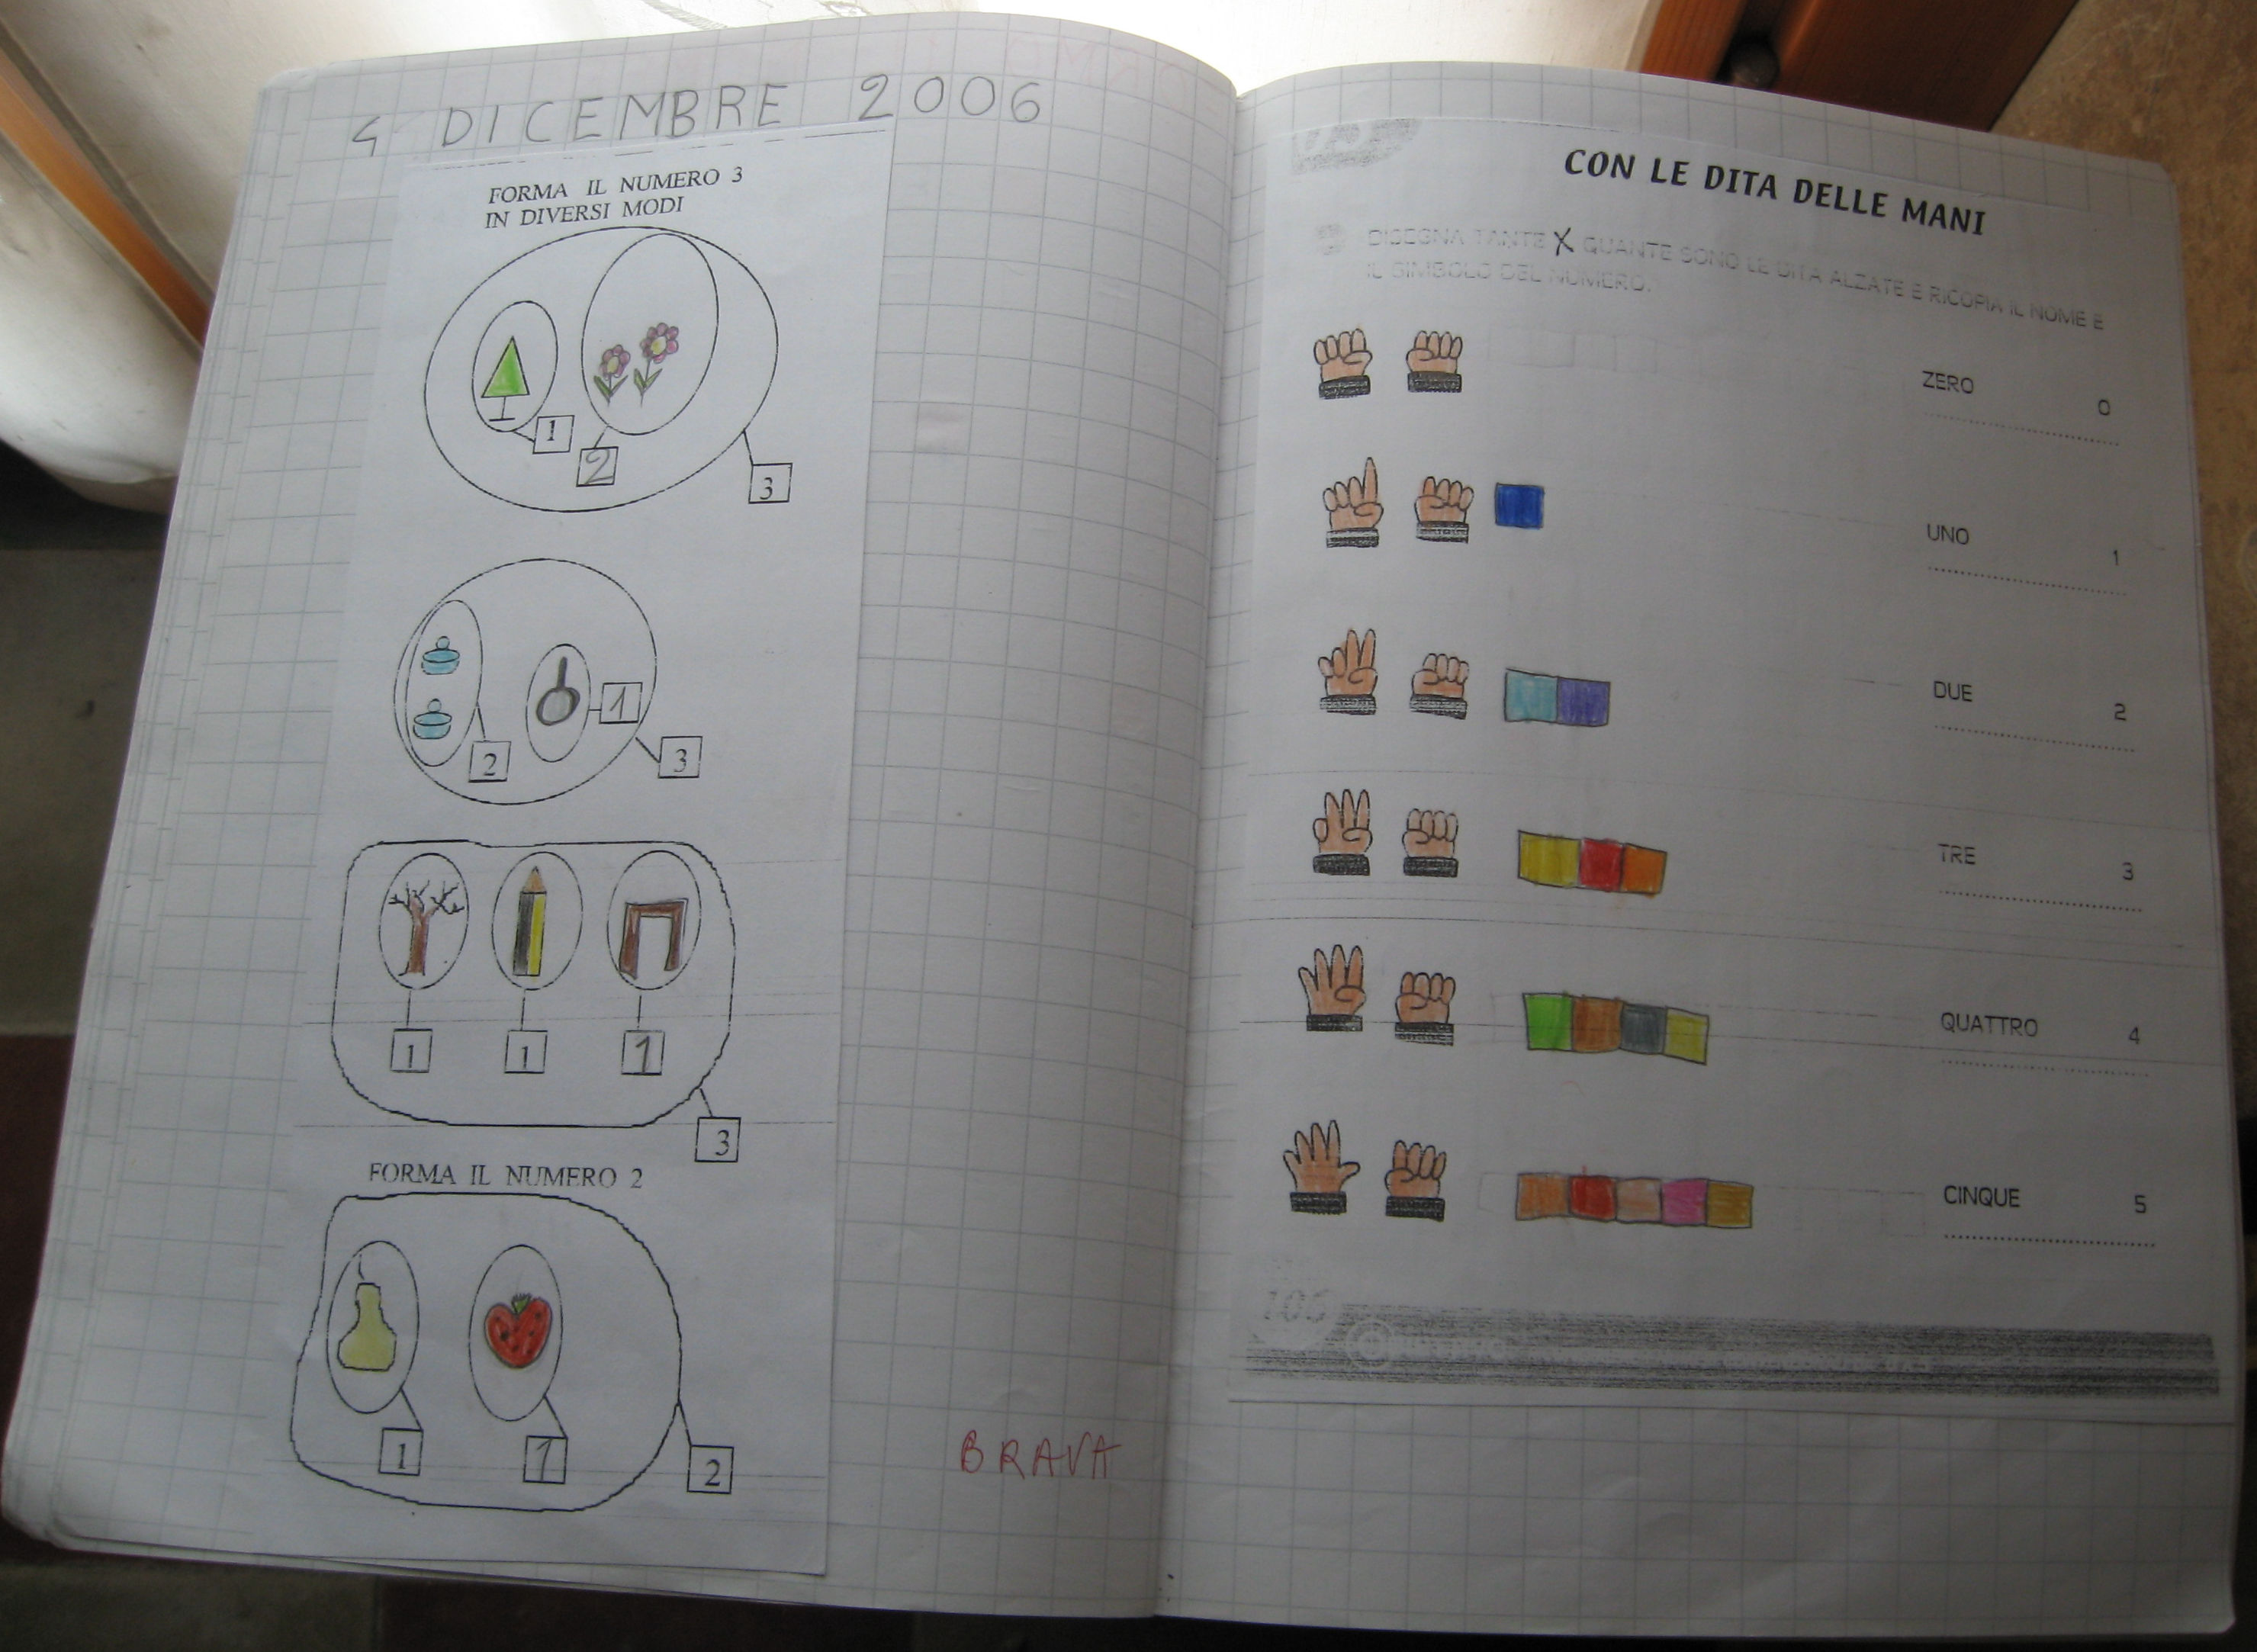 4 DICEMBRE 2006
FORMA IL NUMERO 3
IN DIVERSI MODI
1
2
3
2
1
3
1
1
1
3
FORMA IL NUMERO 2
1
1
2
BRAVA
CON LE DITA DELLE MANI
DISEGNA TANTE X QUANTE SONO LE DITA ALZATE E RICOPIA IL NOME E
IL SIMBOLO DEL NUMERO.
ZERO 0
UNO 1
DUE 2
TRE 3
QUATTRO 4
CINQUE 5
106